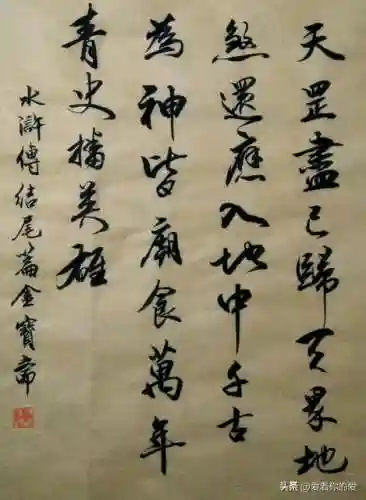 天罡盡已歸天界地
煞還應入地中千古
為神皆廟食萬年
青史播英雄
水滸傳結尾篇金寶齋
头条@爱着你的爱